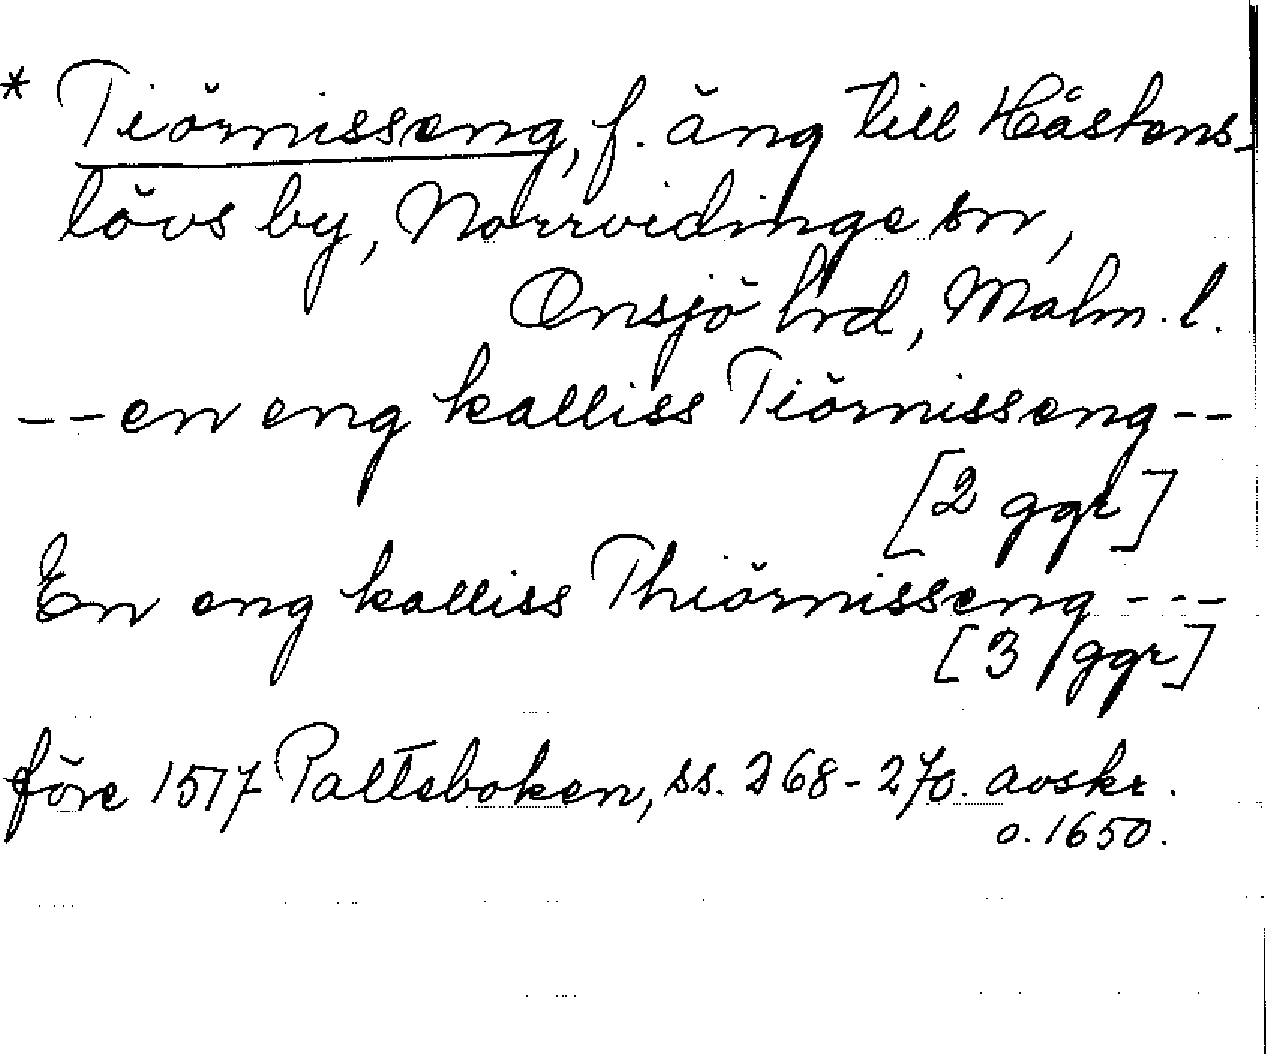 * Tiörnisseng, f. äng till Håstens-
lövs by, Norrvidinge sn,
Onsjö hrd, Malm. l.
-- en eng kalliss Tiörnisseng --
[2 ggr]
En eng kalliss Thiörnisseng ---
[3 ggr]
före 1517 Palteboken, ss. 268-270. avskr.
o. 1650.